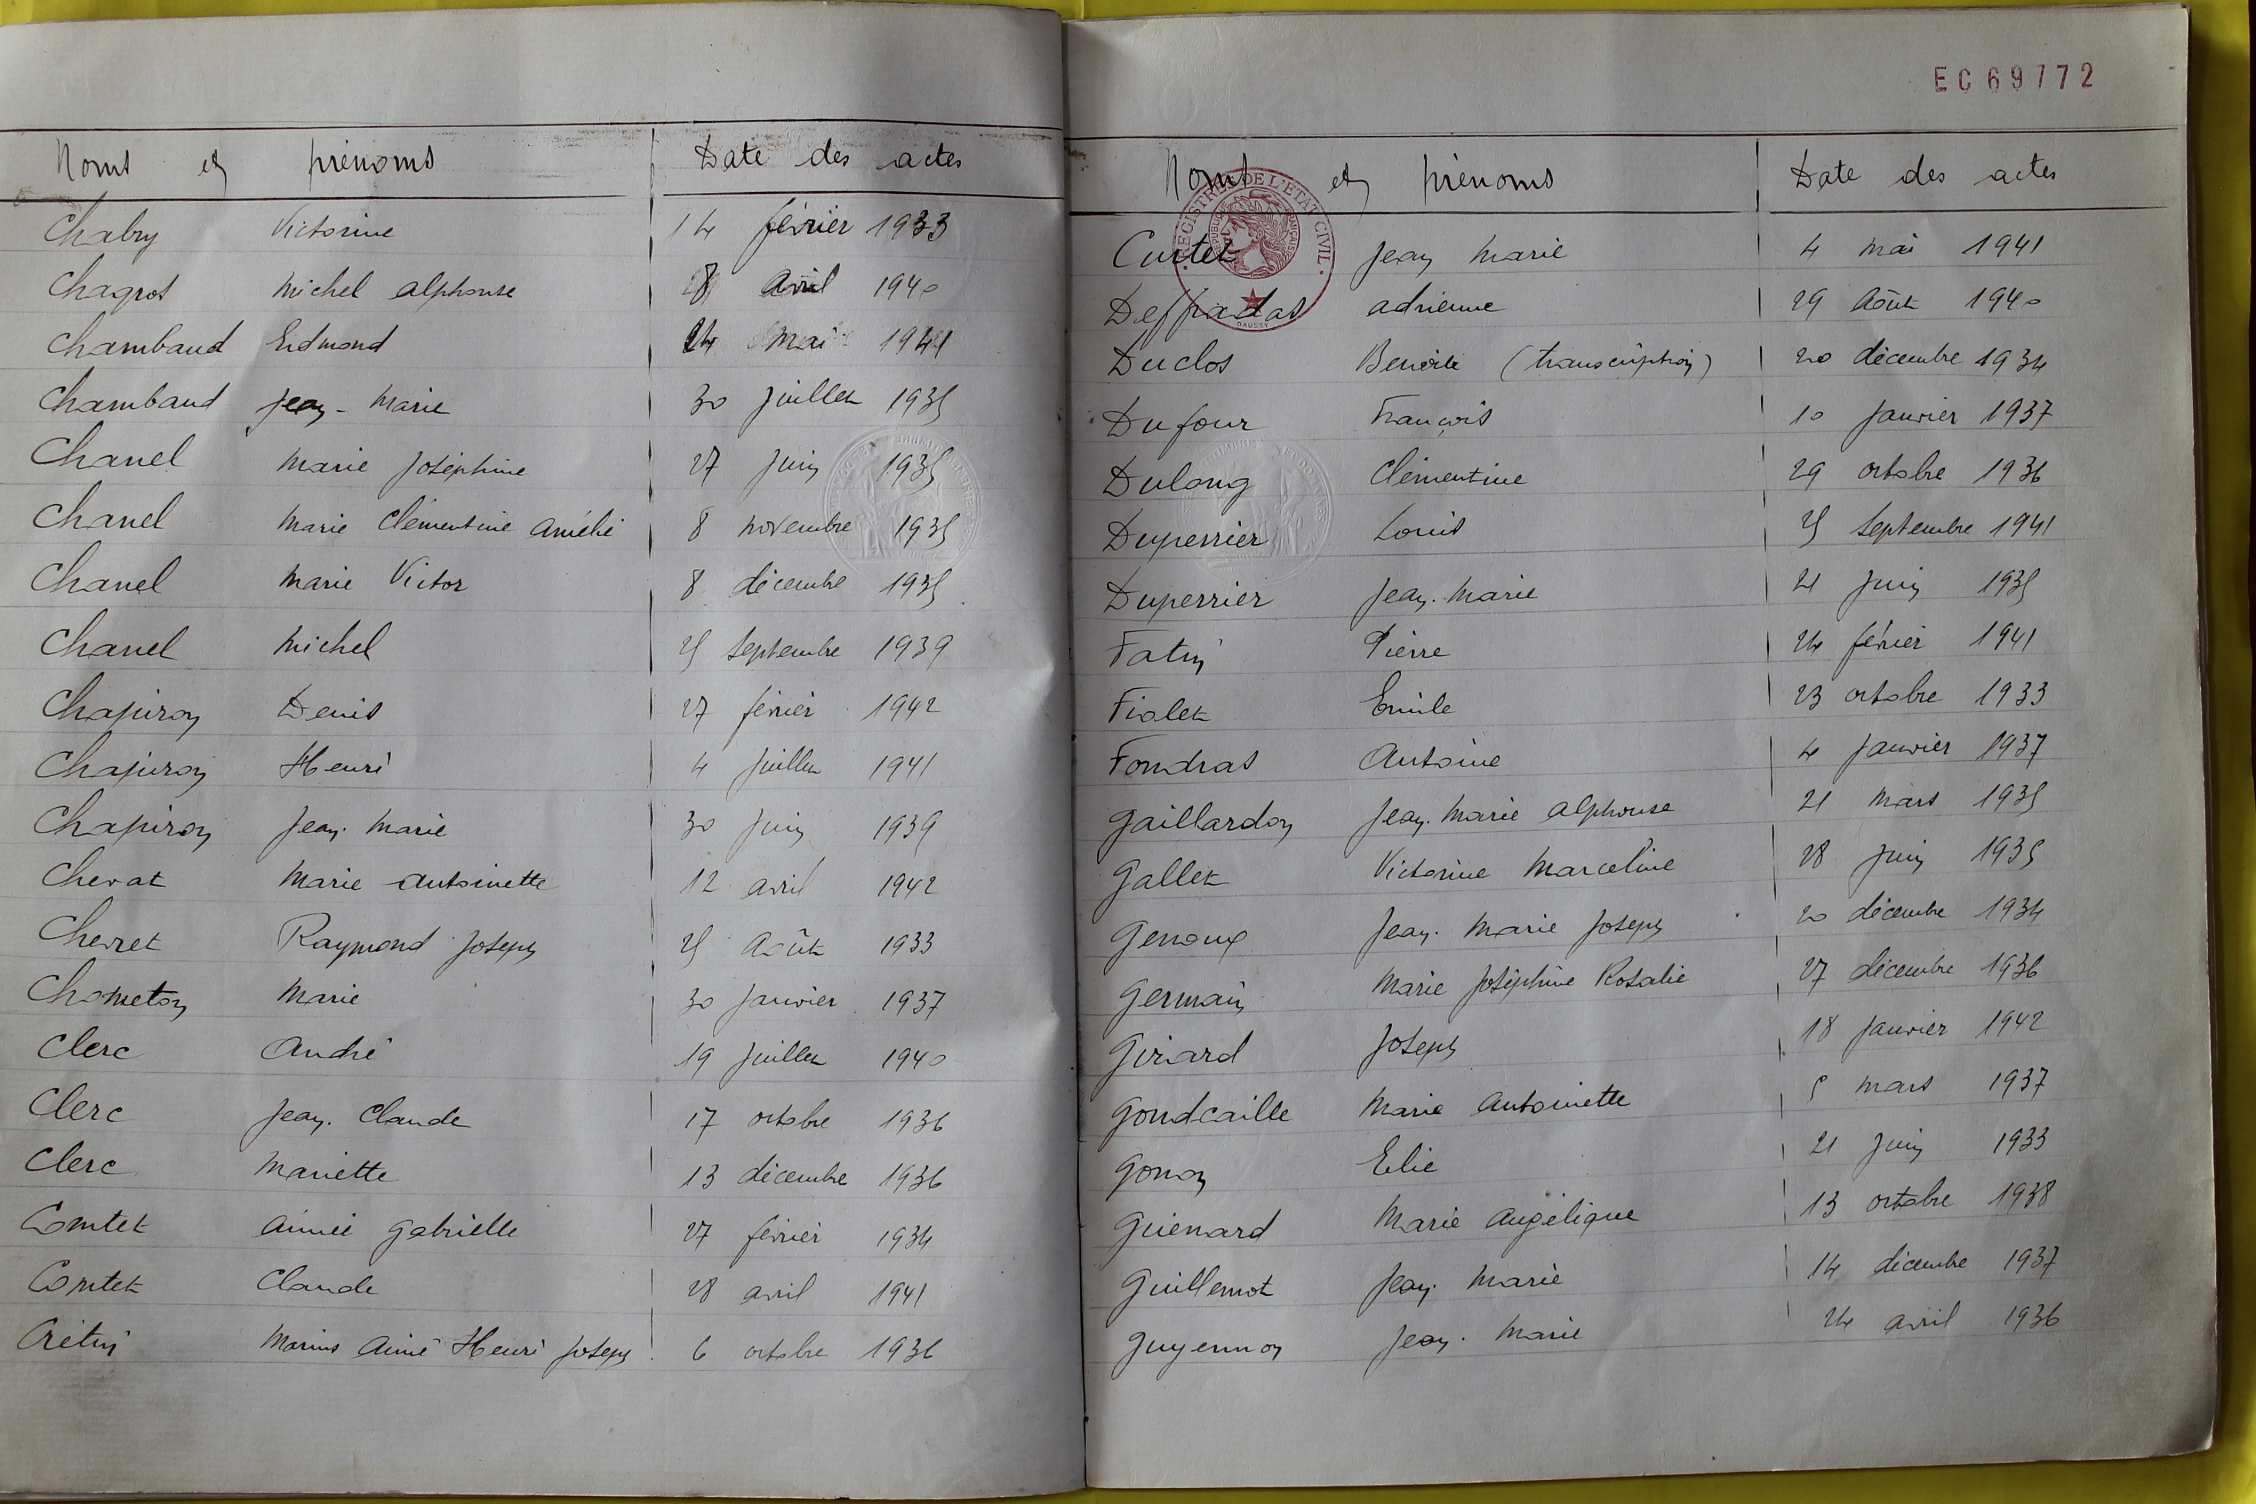 Noms et prénoms Date des actes
Chabry Victorine 14 février 1933
Chagrot Michel Alphonse 28 avril 1940
Chambaud Edmond 24 mai 1941
Chambaud Jean-Marie 30 juillet 1935
Chanel Marie Joséphine 27 juin 1935
Chanel Marie Clémentine Amélie 8 novembre 1935
Chanel Marie Victor 8 décembre 1935
Chanel Michel 25 septembre 1939
Chapiron Denis 27 février 1942
Chapiron Henri 4 juillet 1941
Chapiron Jean-Marie 30 juin 1939
Chevat Marie Antoinette 12 avril 1942
Chevret Raymond Joseph 25 août 1933
Chometon Marie 30 janvier 1937
Clerc André 19 juillet 1940
Clerc Jean-Claude 17 octobre 1936
Clerc Mariette 13 décembre 1936
Comtet Aimée Gabrielle 27 février 1934
Comtet Claude 28 avril 1941
Crétin Marius Aimé Henri Joseph 6 octobre 1936
EC69772
Noms et prénoms Date des actes
REGISTRES DE L'ETAT CIVIL
Curtet Jean Marie 4 mai 1941
Deffradas Adrienne 29 août 1940
Duclos Benoîte (transcription) 20 décembre 1934
Dufour François 10 janvier 1937
Dulong Clémentine 29 octobre 1936
Duperrier Louis 25 septembre 1941
Duperrier Jean-Marie 21 juin 1935
Fatin Pierre 24 février 1941
Fiolet Emile 23 octobre 1933
Fondras Antoine 4 janvier 1937
Gaillardon Jean-Marie Alphonse 21 mars 1935
Gallet Victorine Marceline 28 juin 1935
Genoux Jean-Marie Joseph 20 décembre 1934
Germain Marie Joséphine Rosalie 27 décembre 1936
Girard Joseph 18 janvier 1942
Gondcaille Marie Antoinette 5 mars 1937
Gonon Elie 21 juin 1933
Guienard Marie Angélique 13 octobre 1938
Guillemot Jean-Marie 14 décembre 1937
Guyennon Jean-Marie 24 avril 1936